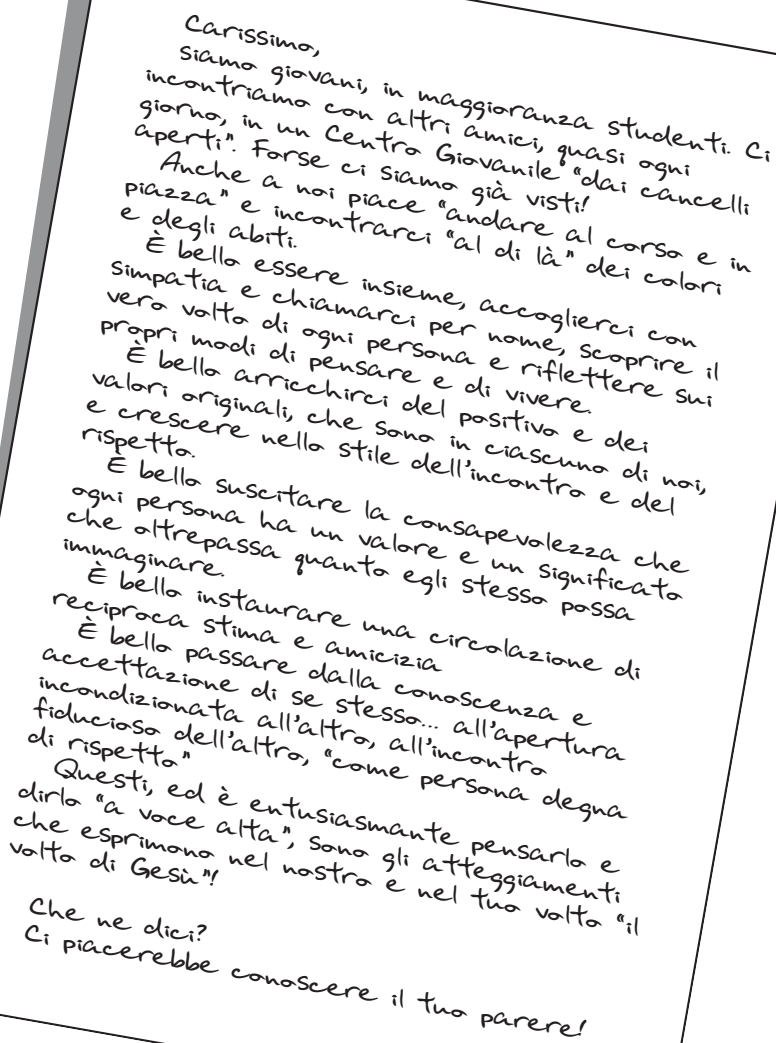 Carissimo,
siamo giovani, in maggioranza studenti. Ci
incontriamo con altri amici, quasi ogni
giorno, in un Centro Giovanile “dai cancelli
aperti”. Forse ci siamo già visti!
Anche a noi piace “andare al corso e in
piazza” e incontrarci “al di là” dei colori
e degli abiti.
È bello essere insieme, accoglierci con
simpatia e chiamarci per nome, scoprire il
vero volto di ogni persona e riflettere sui
propri modi di pensare e di vivere.
È bello arricchirci del positivo e dei
valori originali, che sono in ciascuno di noi,
e crescere nello stile dell’incontro e del
rispetto.
È bello suscitare la consapevolezza che
ogni persona ha un valore e un significato
che oltrepassa quanto egli stesso possa
immaginare.
È bello instaurare una circolazione di
reciproca stima e amicizia
È bello passare dalla conoscenza e
accettazione di se stesso... all’apertura
incondizionata all’altro, all’incontro
fiducioso dell’altro, “come persona degna
di rispetto”
Questi, ed è entusiasmante pensarlo e
dirlo “a voce alta”, sono gli atteggiamenti
che esprimono nel nostro e nel tuo volto “il
volto di Gesù”!
Che ne dici?
Ci piacerebbe conoscere il tuo parere!